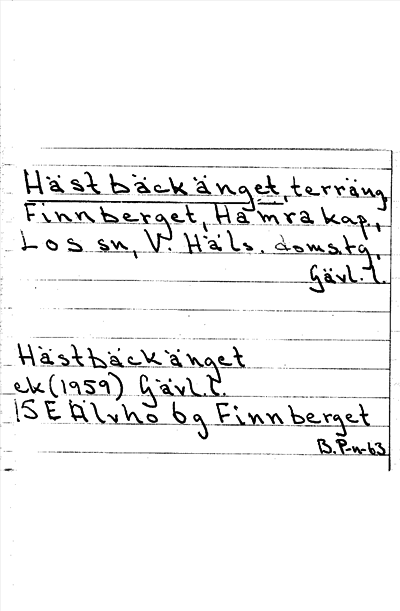 Hästbäckänget, terräng,
Finnberget, Hamra kap.,
Los sn, V. Häls. domstg,
Gävl. l.
Hästbäckänget
ek (1959) Gävl. l.
15E Älvho 6g Finnberget
B. P-n-63